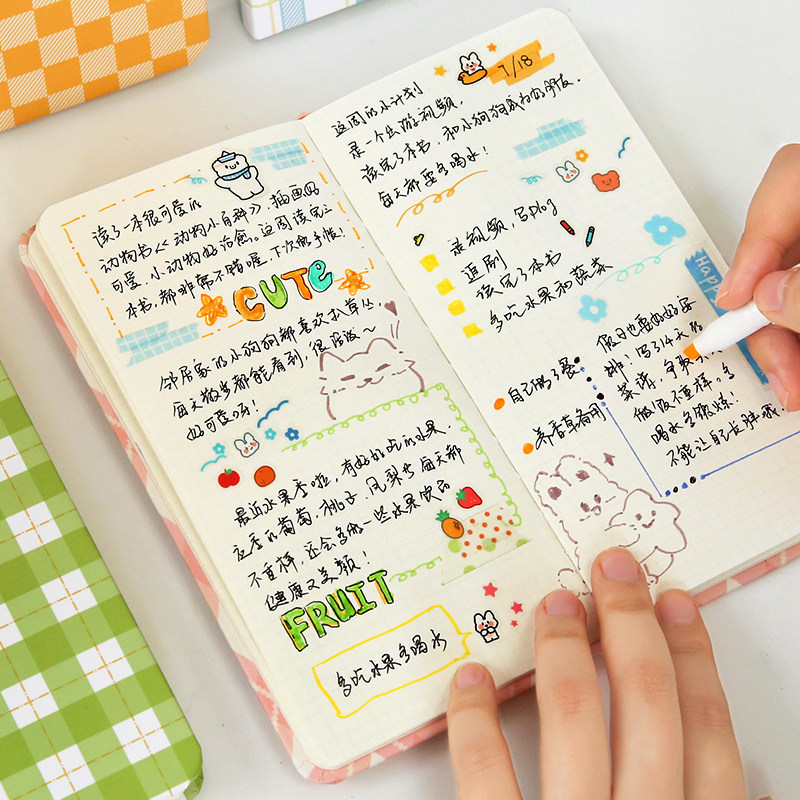 读了一本很可爱的
动物书《动物小百科》，插画好
可爱，小动物好治愈。这周读完三
本书，都非常不错喔，下次做手帐！
CUTE
邻居家的小狗狗都喜欢趴草丛，
每天散步都能看到，很活泼~
好可爱呀！
最近水果季啦，有好好吃的水果，
应季的葡萄，桃子，凤梨
每天都
不重样，还会多做一些水果饮品
健康又美颜！
FRUIT
多吃水果多喝水
7/18
这周的小计划
录一个出游视频，
读完了本书，和小狗狗成为好朋友，
每天都要多喝水！
录视频，写plog
追剧
读完了本书
多吃水果和蔬菜
Happ
自己做了餐
养香草备用
假日也要好好安
排！写了14天的
菜谱，争取
做饭不重样。多
喝水多锻炼！
不能让自己长胖哦